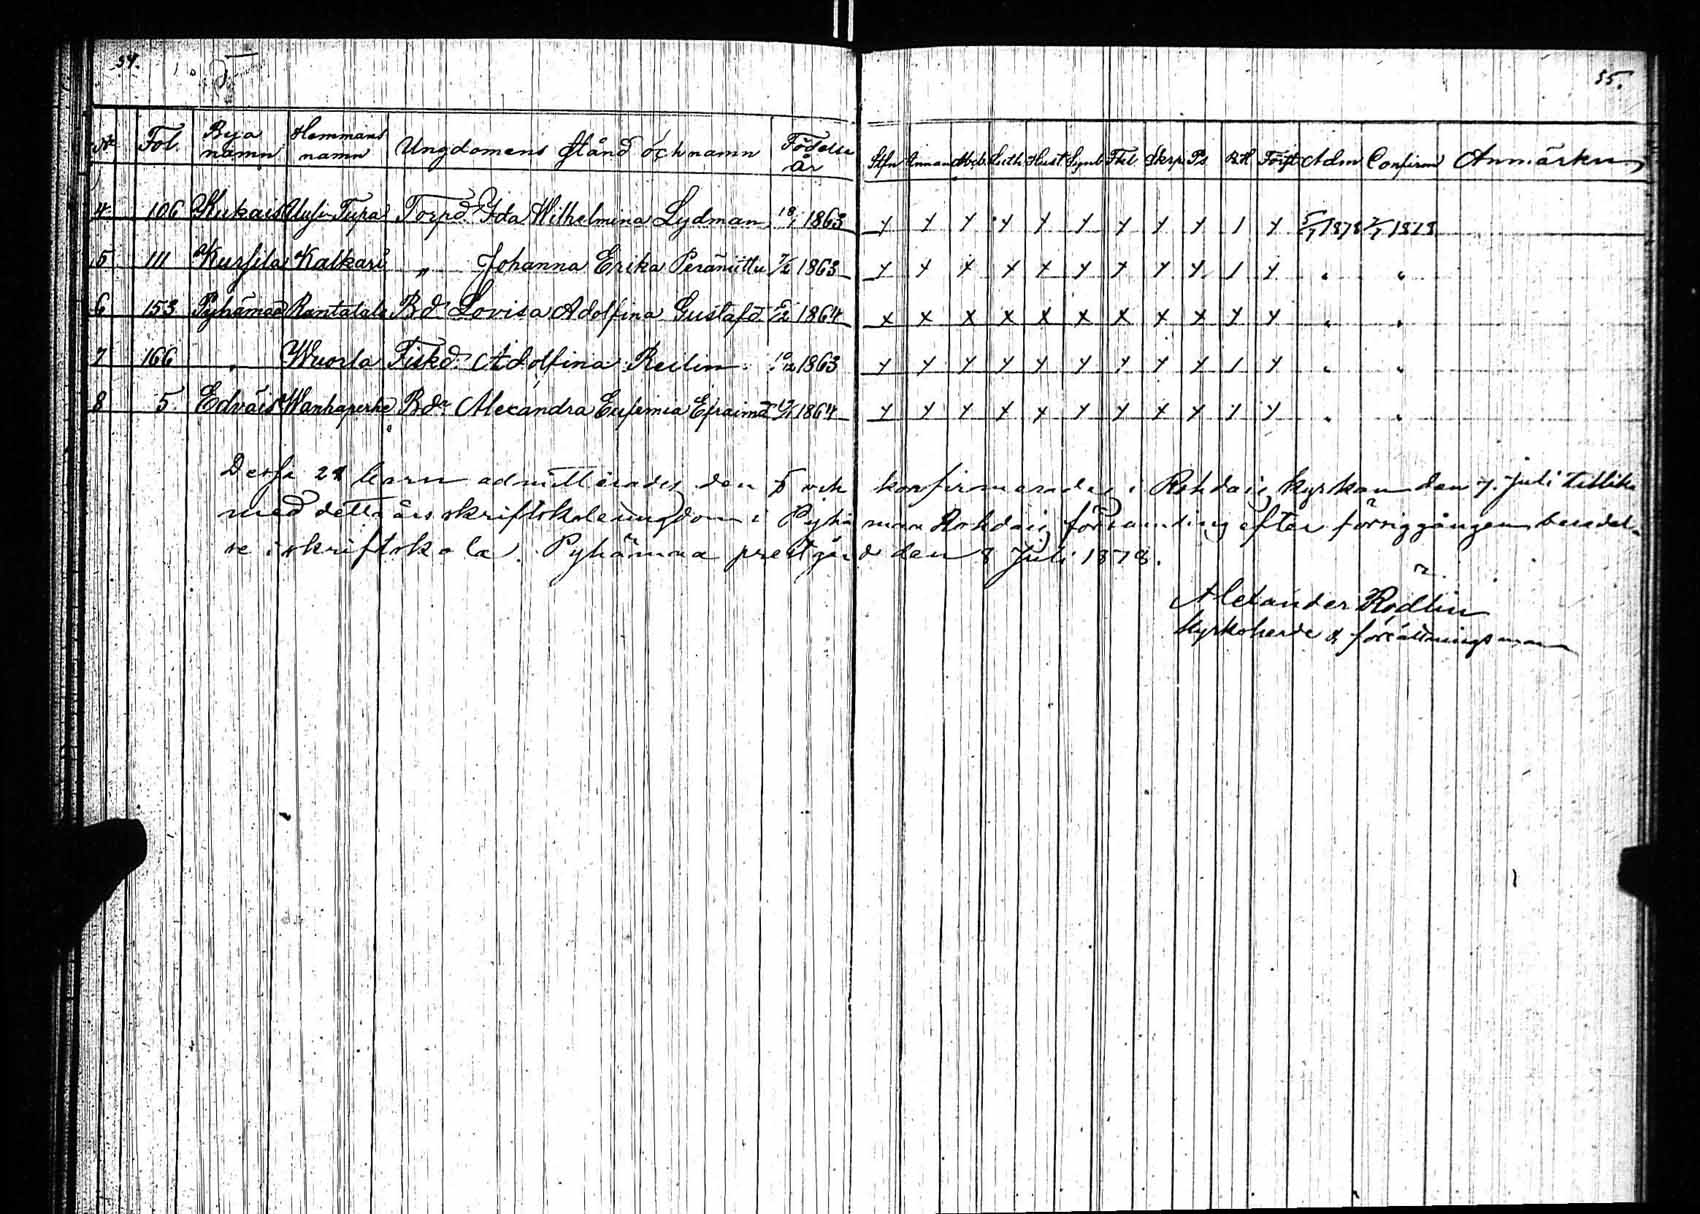 54.
55.
No Fol. Bya namn Hemmans namn Ungdomens stånd och namn Födelse år Stfn Innan Abcb Luth Hust Symb Fhl Skrp Ps B.H Först Adm Confirm Anmärkn
4 106 Kukais Uusi Tupa Torpd. Ida Wilhelmina Lydman 18/1 1863 x x x x x x x x x 1 x 5/7 1878 7/7 1878
5 111 Kursila Kalkari " Johanna Erika Perämittu 1863 x x x x x x x x x 1 x " "
6 153 Pyhämaa Rantatalo Bdr Lovisa Adolfina Gustafd. 1864 x x x x x x x x x x x " "
7 166 " Wuorla Fiskd. Adolfina Reilin 1863 x x x x x x x x x 1 x " "
8 5 Edväis Wanhaperhe Bdr Alexandra Eufemia Efraimd 1864 x x x x x x x x x x x " "
Dessa barn admitterades den 5 och konfirmerades i Rohdais kyrkan den 7. Juli tillika
med detta års skriftskoleungdom i Pyhämaa Rohdais församling efter föregången beredel-
se i skriftskola. Pyhämaa prestgård den 8 Juli 1878.
Alexander Rödlin
Kyrkoherde & författningsman